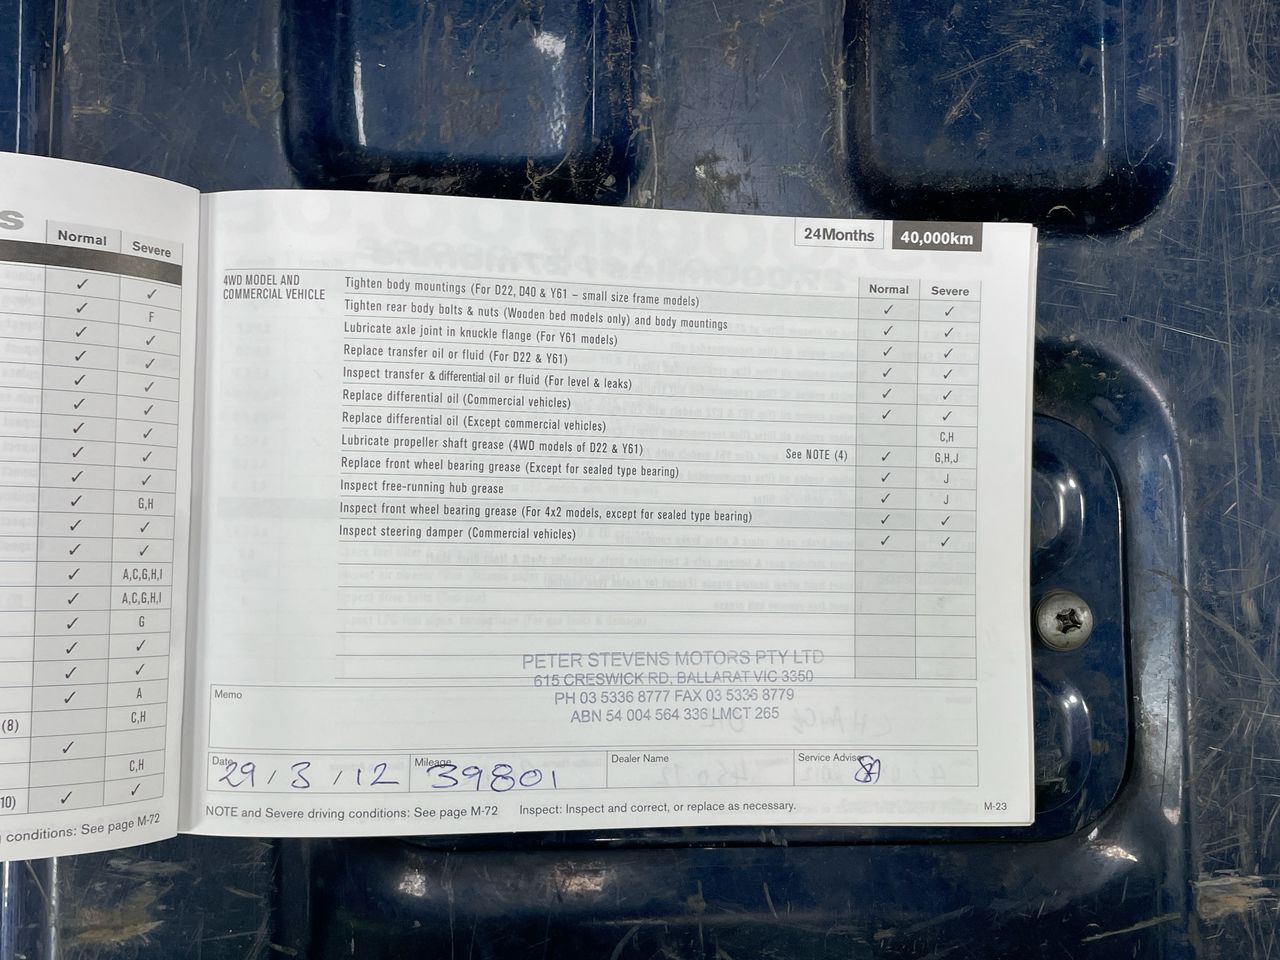 s
Normal Severe
✓ ✓
✓ F
✓ ✓
✓ ✓
✓ ✓
✓ ✓
✓ ✓
✓ ✓
✓ ✓
✓ G,H
✓ ✓
✓ ✓
✓ A,C,G,H,I
✓ A,C,G,H,I
✓ G
✓ ✓
✓ ✓
✓ A
(8) C,H
✓
C,H
10) ✓ ✓
conditions: See page M-72
24Months 40,000km
4WD MODEL AND
COMMERCIAL VEHICLE
Normal Severe
Tighten body mountings (For D22, D40 & Y61 – small size frame models) ✓ ✓
Tighten rear body bolts & nuts (Wooden bed models only) and body mountings ✓ ✓
Lubricate axle joint in knuckle flange (For Y61 models) ✓ ✓
Replace transfer oil or fluid (For D22 & Y61) ✓ ✓
Inspect transfer & differential oil or fluid (For level & leaks) ✓ ✓
Replace differential oil (Commercial vehicles) ✓ ✓
Replace differential oil (Except commercial vehicles) C,H
Lubricate propeller shaft grease (4WD models of D22 & Y61) See NOTE (4) ✓ G,H,J
Replace front wheel bearing grease (Except for sealed type bearing) ✓ J
Inspect free-running hub grease ✓ J
Inspect front wheel bearing grease (For 4x2 models, except for sealed type bearing) ✓ ✓
Inspect steering damper (Commercial vehicles) ✓ ✓
PETER STEVENS MOTORS PTY LTD
615 CRESWICK RD, BALLARAT VIC 3350
PH 03 5336 8777 FAX 03 5336 8779
ABN 54 004 564 336 LMCT 265
Memo
Date 29/3/12 Mileage 39801 Dealer Name Service Adviser
NOTE and Severe driving conditions: See page M-72 Inspect: Inspect and correct, or replace as necessary. M-23